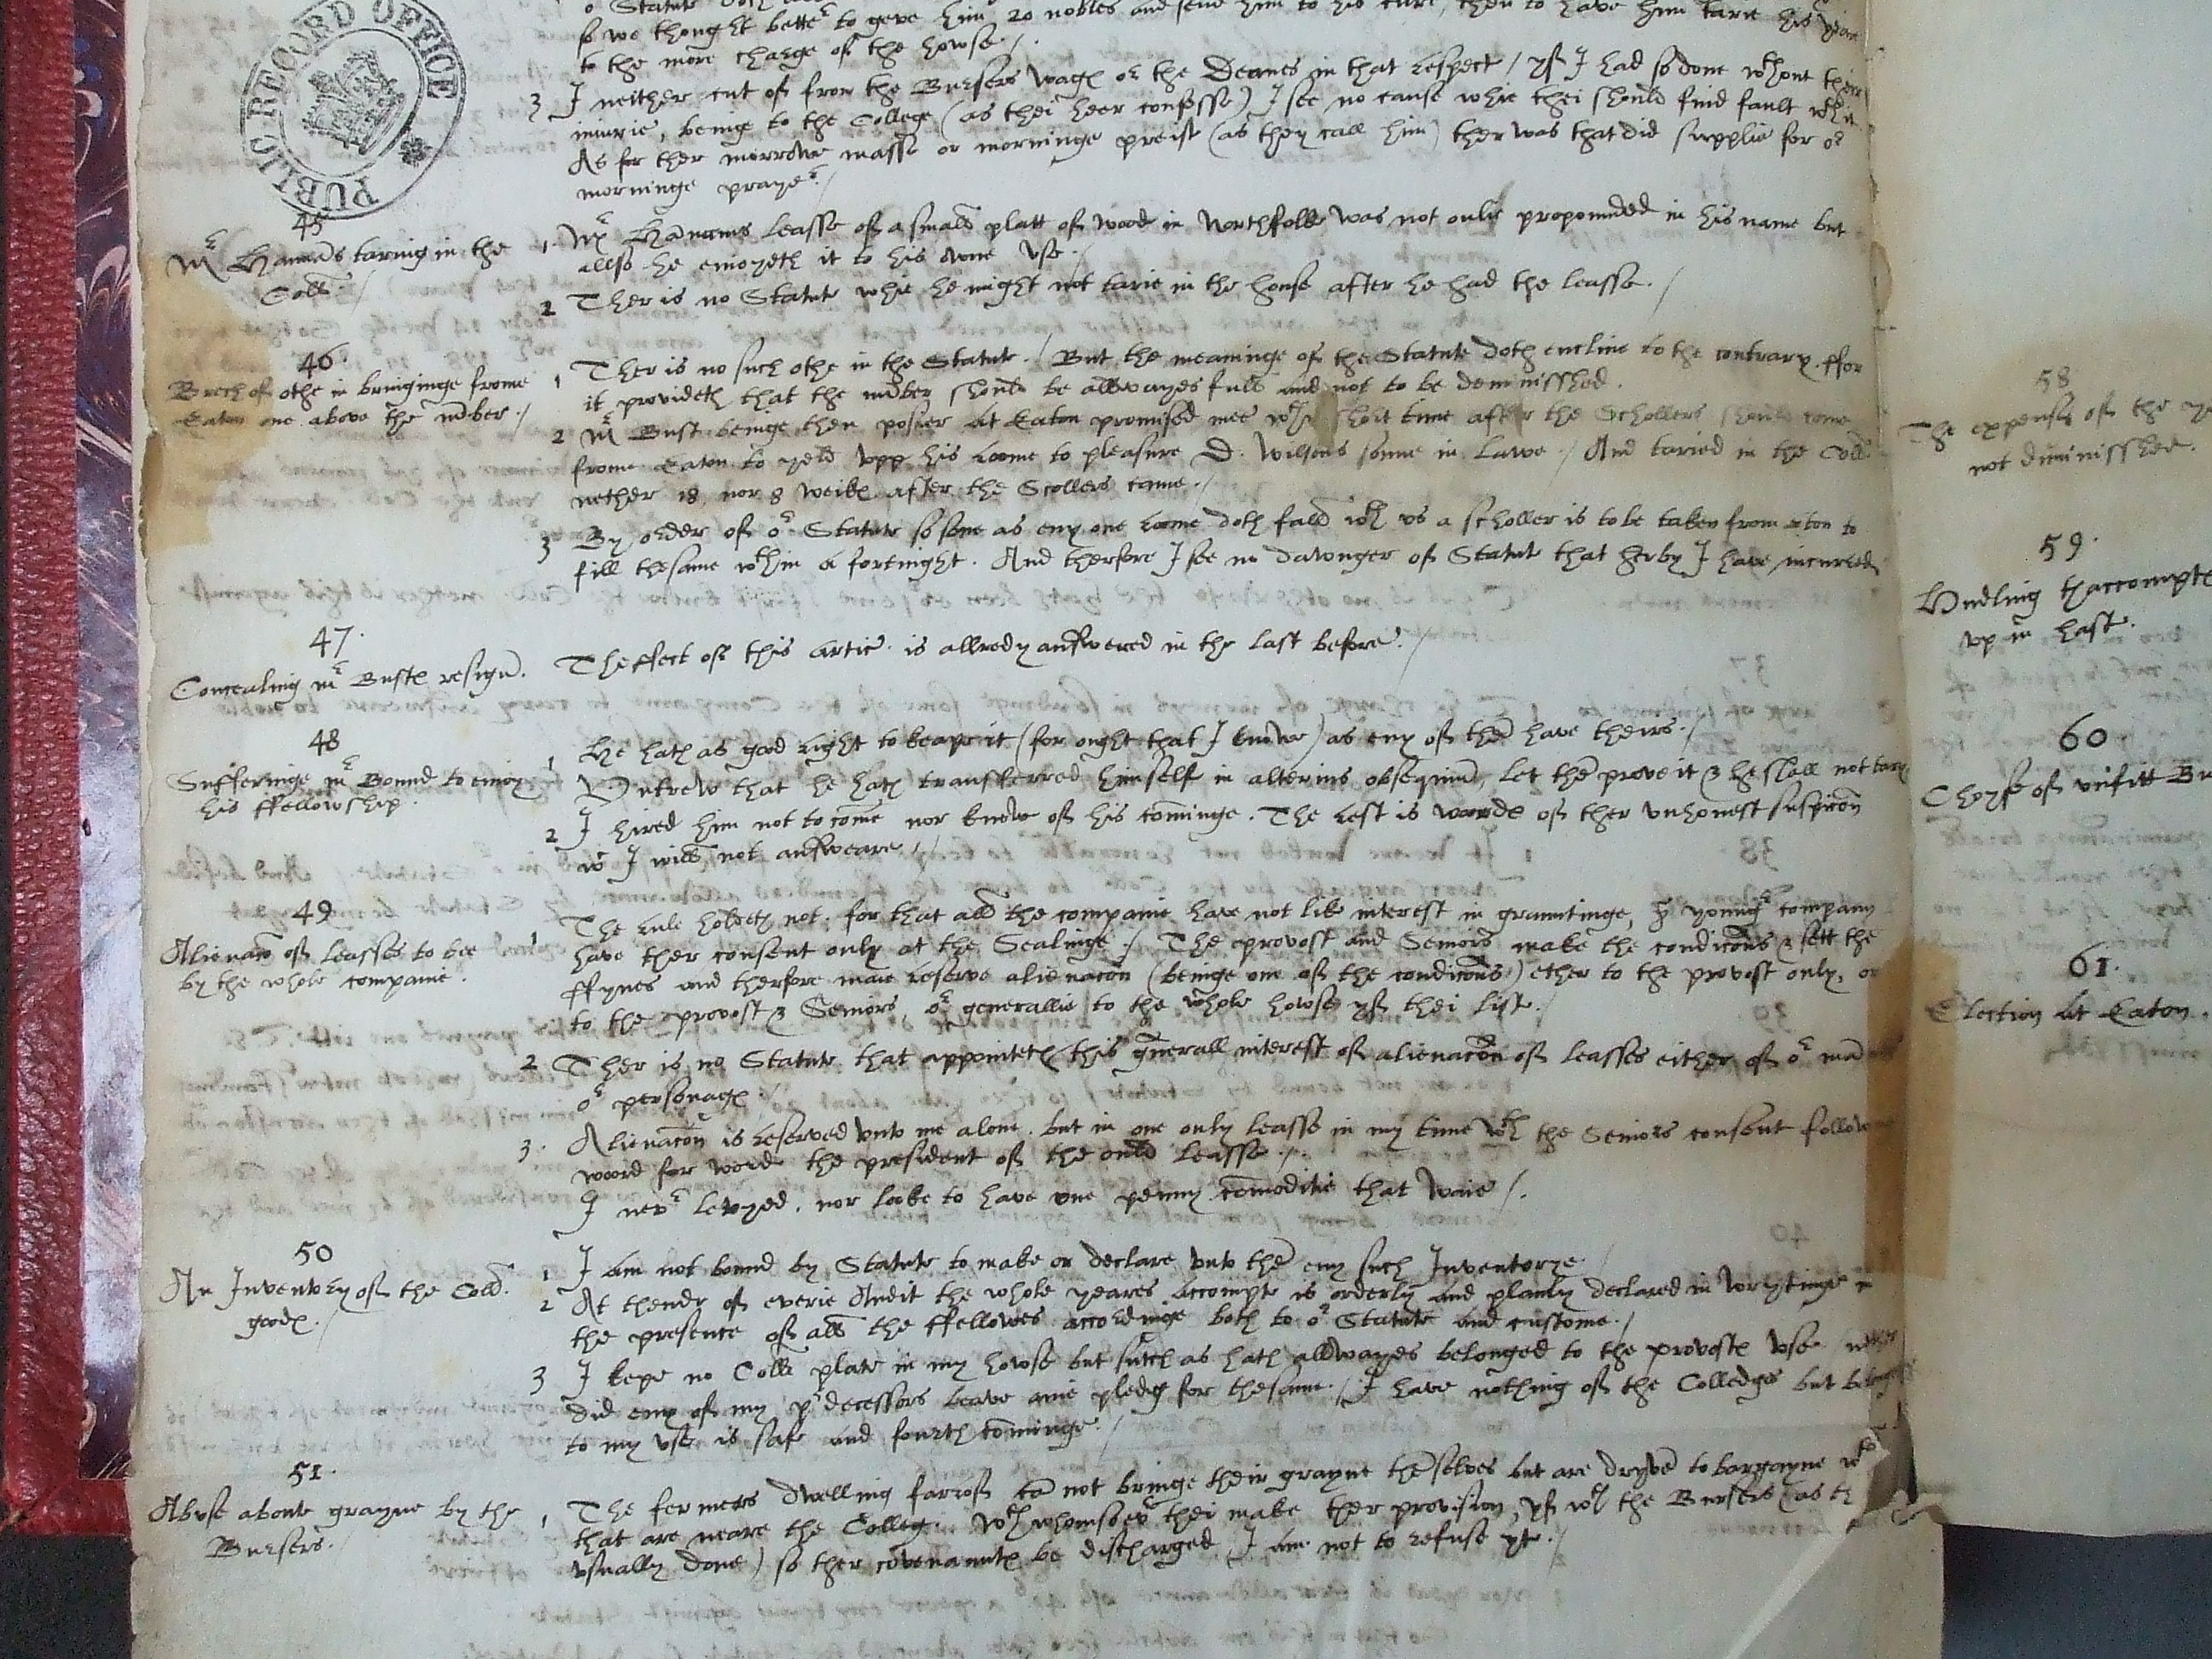 PUBLIC RECORD OFFICE
so we thought better to geve him 20 nobles and send him to his cure, then to have him tarie his
to the more charge of the howse./.
3 I neither cut of from the Bursers wagℯ or the Deanes in that respect / yf I had so done wthout their
iniurie, beinge to the College (as thei heer confesse) I see no cause whie thei should find fault wth it
As for ther morrowe masse or morninge preist (as they call him) ther was that did supplie for or
morninge prayer./
45
Mr Hamōds tariing in the
Coll./
1. Mr Hamōds leasse of a small platt of wood in Northfolke was not onlie propounded in his name but
allso he enioyeth it to his owne use./
2 Ther is no Statute whie he might not tarie in the house after he had the leasse./
46.
Brech of othe in bringinge frome
Eaton one above the nūber./
1 Ther is no such othe in the Statute./ But the meaninge of the Statute doth encline to the contrary. ffor
it provideth that the nūber should be allwayes full and not to be deminisshed.
2 Mr Bust beinge then poser at Eaton promised mee short time after the Schollers should come
frome Eaton to yeld upp his roome to pleasure D. Wilsons sonne in lawe./ And taried in the Coll.
nether 18 nor 8 weikℯ after the Scollers came./
3 By order of or Statute so sone as eny one roome doth fall wth us a scholler is to be taken from eton to
fill thesame wthin a fortnight. And therfore I see no dawnger of Statute that herby I have incurred
47.
Concealing mr Bustℯ resign.
Theffect of this artic. is allredy answered in the last before./
48
Sufferinge mr Bound to enioy
his ffellowship.
1 He hath as good right to keape it (for ought that I knowe) as eny of thē have theirs./
that he hath transferred himself in alterius obsequiū, let thē prove it & he shall not tary
2 I hired him not to come nor knewe of his cōminge. The rest is wordℯ of ther unhonest suspicōn
wch I will not answeare./
49
Alienacōn of leasses to bee
by the whole companie.
1 The rule holdeth not. for that all the companie have not like interest in grauntinge, yonger company
have ther consent only at the Sealinge./ The provost and Seniors make the condicōns & sett the
ffynes and therfore maie reserve alienacōn (beinge one of the condicōns) ether to the provost only, or
to the provost & Seniors, or generallie to the whole howse yf thei list./
2 Ther is no Statute that appointeth this generall interest of alienacōn of leasses either of or
or personagℯ./
3. Alienacōn is reserved unto me alone. but in one only leasse in my time wth the Seniors consent
word for worde the president of the ould leasse./.
I never nor looke to have one penny cōmoditie that waie/.
50
An Inventory of the Coll.
goodℯ./
1 I am not bound by Statute to make or declare unto thē eny such Inventorye./
2 At thende of everie Audit the whole yeares accompte is orderly and planly declared in wrytinge in
the presence of all the ffellowes accordinge both to or Statute and custome./
3 I kepe no Coll. plate in my howse but such as hath allwayes belonged to the provostℯ use.
did eny of my prdecessors leave anie pledg for thesame./ I have nothing of the Colledges but
to my use is safe and fourth cōminge./
51.
Abuse about grayne by the
Bursers./
1 The fermers dwelling farrof cā not bringe their grayne thēselves but are dryvē to bargayne
that are neare the College. Wth whomsoever thei make ther provision, yf wth the Bursers (as
usually done) so ther covenauntℯ be discharged I am not to refuse yt./
58
The expenses of the
not diminisshed.
59.
Hudling thaccompte
up in hast.
60.
Choyse of unfitt
61.
Election at Eaton.